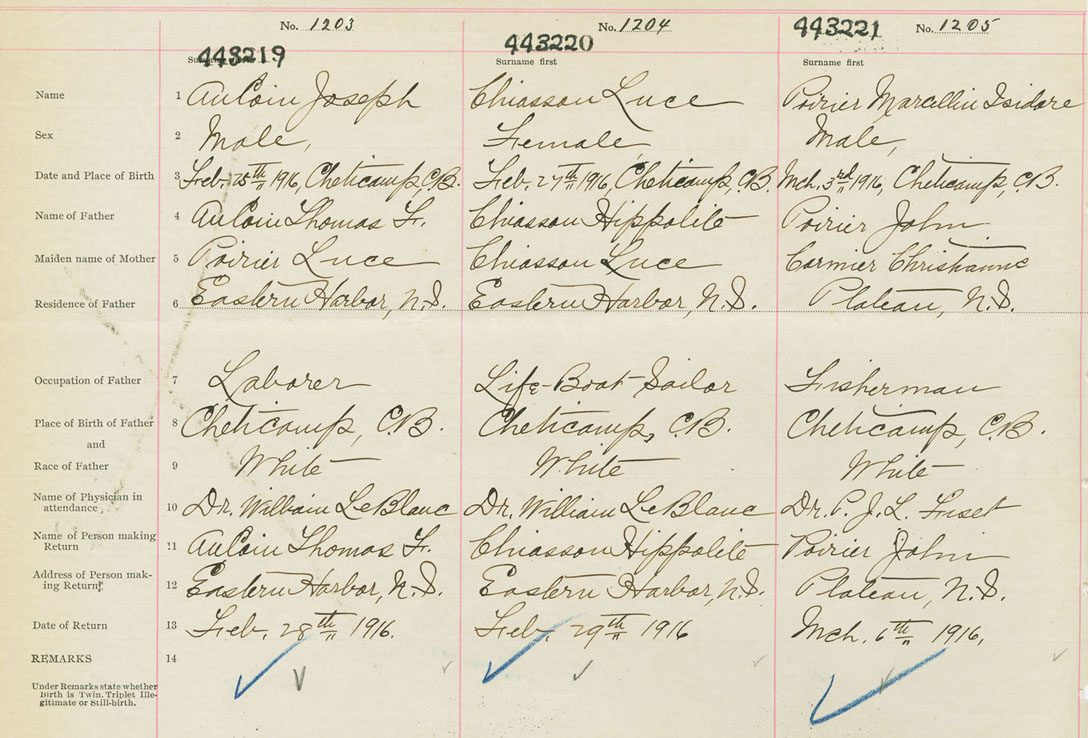 No. 1203 No. 1204 No. 1205
443219 443220 443221
Surname first Surname first
Name 1 AuCoin Joseph Chiasson Luce Poirier Marcellin Isidore
Sex 2 Male, Female Male,
Date and Place of Birth 3 Feb. 25th 1916, Cheticamp, C.B. Feb. 27th 1916, Cheticamp, C.B. Mch. 3rd 1916, Cheticamp, C.B.
Name of Father 4 AuCoin Thomas F. Chiasson Hippolite Poirier John
Maiden name of Mother 5 Poirier Luce Chiasson Luce Cormier Christianne
Residence of Father 6 Eastern Harbor, N.S. Eastern Harbor, N.S. Plateau, N.S.
Occupation of Father 7 Laborer Life-Boat-Sailor Fisherman
Place of Birth of Father 8 Cheticamp, C.B. Cheticamp, C.B. Cheticamp, C.B.
and
Race of Father 9 White White White
Name of Physician in
attendance 10 Dr. William LeBlanc Dr. William LeBlanc Dr. P. J. L. Fiset
Name of Person making
Return 11 AuCoin Thomas F. Chiasson Hippolite Poirier John
Address of Person mak-
ing Return 12 Eastern Harbor, N.S. Eastern Harbor, N.S. Plateau, N.S.
Date of Return 13 Feb. 28th 1916. Feb. 29th 1916 Mch. 6th 1916,
REMARKS 14
Under Remarks state whether
Birth is Twin. Triplet Ille-
gitimate or Still-birth.